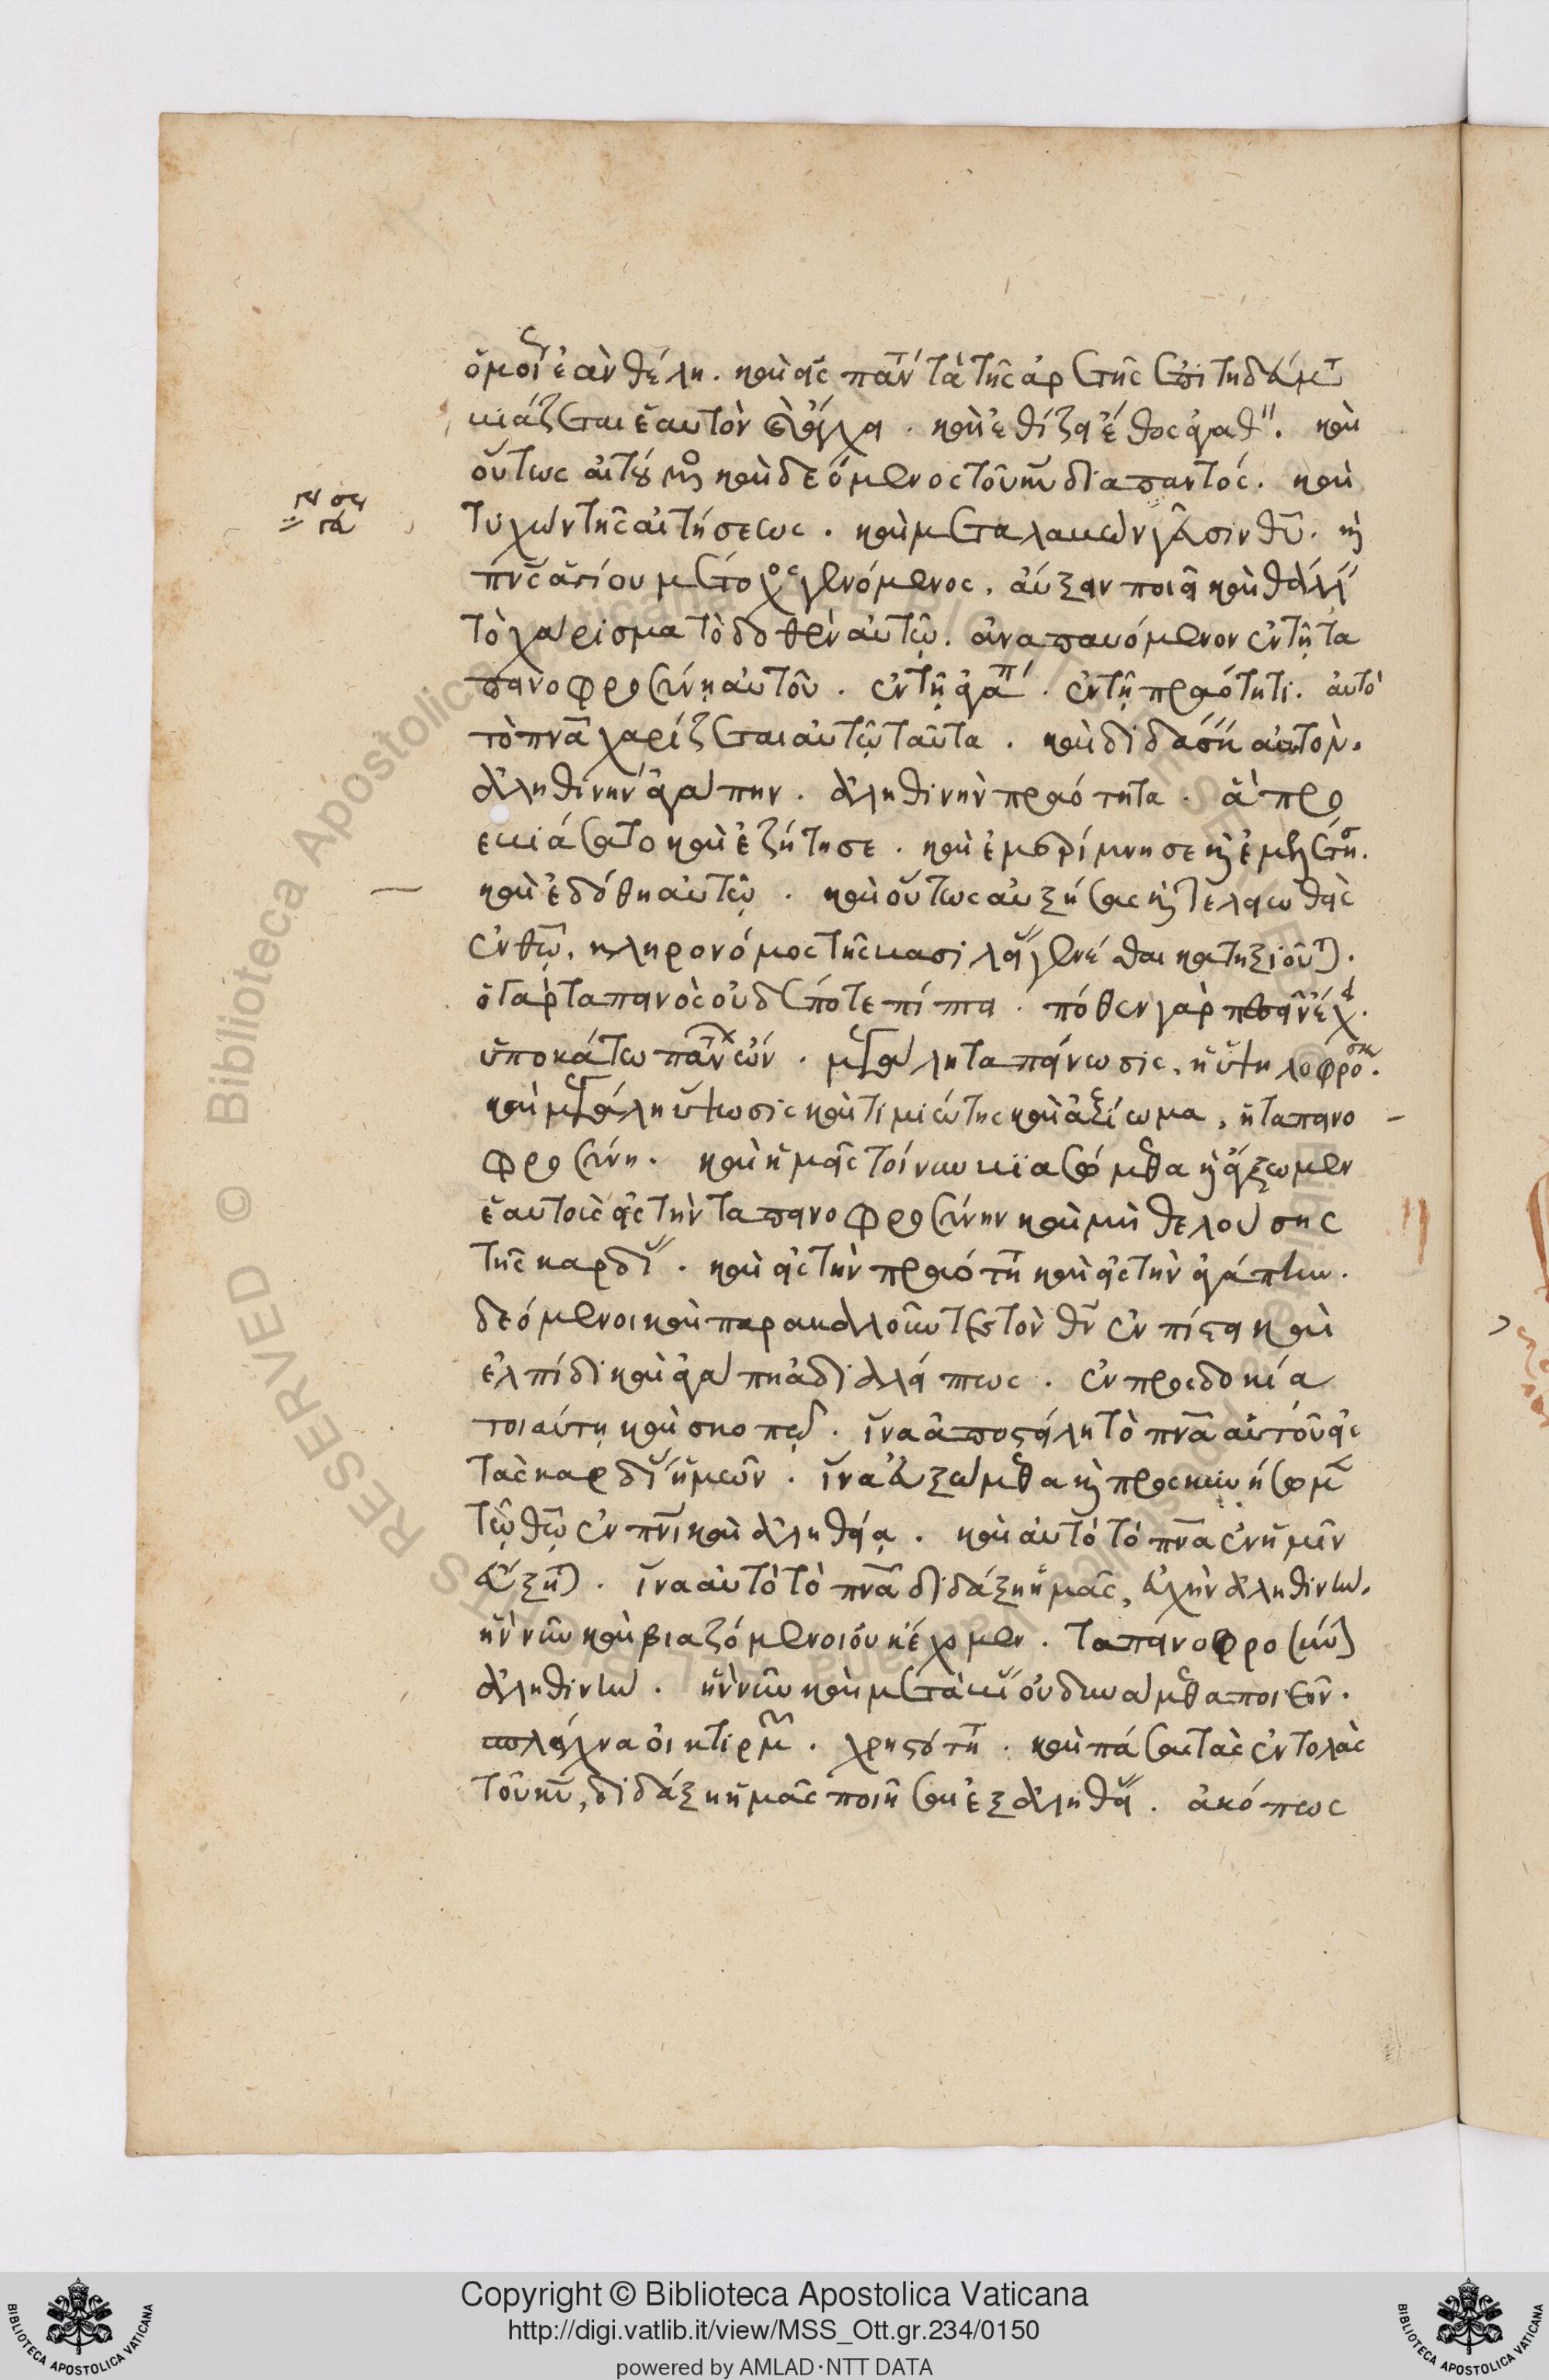 ὅμοῖ ἐὰν θέλη. καὶ εἰς πάντα τὰ τῆς ἀρετῆς ἐπιτηδεύμτ
βιάζεται ἑαυτὸν ἐλέγχει. καὶ ἐθίζει ἔθος ἀγαθ. καὶ
οὕτως αἰτούμενος καὶ δεόμενος τοῦ κυ διαπαντός. καὶ
τυχὼν τῆς αἰτήσεως. καὶ μεταλαβὼν γεῦσιν θυ. καὶ
πνς ἁγίου μέτοχος γενόμενος. αὔξειν ποιεῖ καὶ θάλλειν
τὸ χάρισμα τὸ δοθὲν αὐτῷ. ἀναπαυόμενον ἐν τῇ τα
πεινοφροσύνῃ αὐτοῦ. ἐν τῇ ἀγάπ. ἐν τῇ πραότητι. αὐτὸ
τὸ πνα χαρίζεται αὐτῷ ταῦτα. καὶ διδάσκει αὐτὸν.
ἀληθινὴν ἀγάπην. ἀληθινὴν πραότητα. ἃ προ
εβιάσατο καὶ ἐζήτησε. καὶ ἐμερίμνησε καὶ ἐμελέτησ.
καὶ ἐδόθη αὐτῷ. καὶ οὕτως αὐξήσας καὶ τελειωθεὶς
ἐν θω. κληρονόμος τῆς βασιλεί γενέσθαι καταξιοῦτ.
ὁ γὰρ ταπεινὸς οὐδέποτε πίπτει. πόθεν γὰρ πεσεῖν ἔχει.
ὑποκάτω πάντων ὤν. μεγάλη ταπείνωσις, ἡ ὑψηλοφρο.
καὶ μεγάλη ὕψωσις καὶ τιμιότης καὶ ἀξίωμα, ἡ ταπεινο
φροσύνη. καὶ ἡμεῖς τοίνυν βιασώμεθα καὶ ἄξωμεν
ἑαυτοὺς εἰς τὴν ταπεινοφροσύνην καὶ μὴ θελούσης
τῆς καρδί. καὶ εἰς τὴν πραότητ καὶ εἰς τὴν ἀγάπην.
δεόμενοι καὶ παρακαλοῦντες τὸν θν ἐν πίστει καὶ
ἐλπίδι καὶ ἀγάπῃ ἀδιαλείπτως. ἐν προσδοκία
τοιαύτῃ καὶ σκοπῷ. ἵνα ἀποστείλῃ τὸ πνα αὐτοῦ εἰς
τὰς καρδί ἡμῶν. ἵνα εὐξώμεθα καὶ προσκυνήσωμ
τῷ θω ἐν πνι καὶ ἀληθείᾳ. καὶ αὐτὸ τὸ πνα ἐν ἡμῖν
εὔξητ. ἵνα αὐτὸ τὸ πνα διδάξῃ ἡμᾶς, εὐχὴν ἀληθινήν.
ἣν νῦν καὶ βιαζόμενοι οὐκ ἔχομεν. ταπεινοφροσύν
ἀληθινὴν. ἣν νῦν καὶ μετὰ βί οὐ δυνάμεθα ποιεῖν.
σπλάγχνα οἰκτιρμ. χρηστότητ. καὶ πάσας τὰς ἐντολὰς
τοῦ κυ, διδάξῃ ἡμᾶς ποιῆσαι ἐξ ἀληθεί. ἀκόπως
Copyright © Biblioteca Apostolica Vaticana
http://digi.vatlib.it/view/MSS_Ott.gr.234/0150
powered by AMLAD·NTT DATA